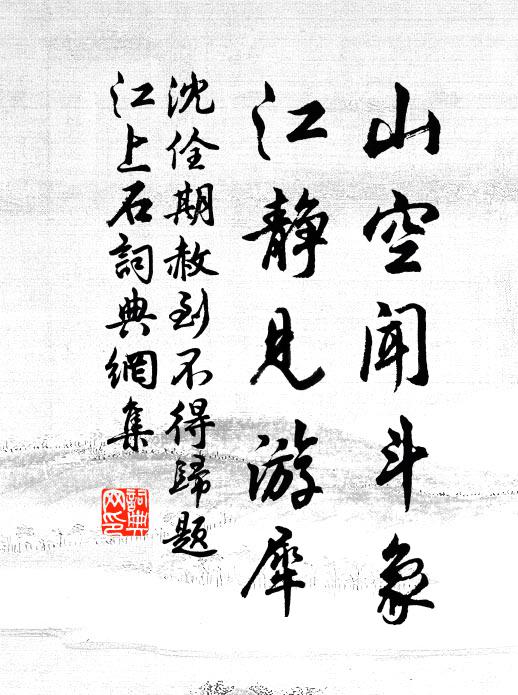 山空闻斗象
江静見游犀
沈佺期赦到不得歸題
江上石詞典網集
詞典
网印